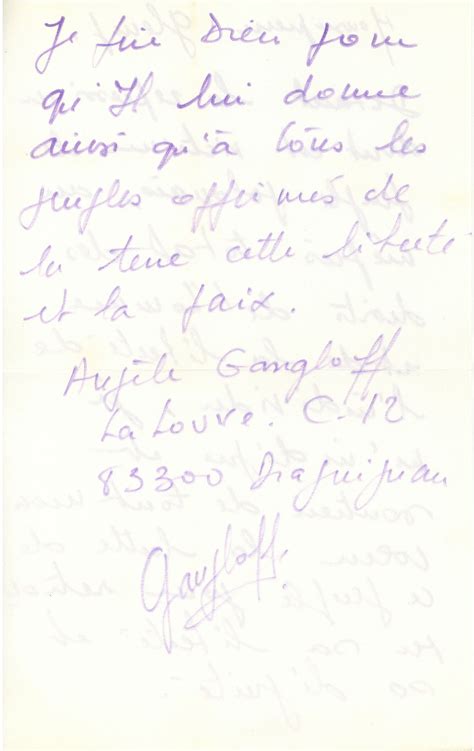 Je prie Dieu pour
qu'Il lui donne
ainsi qu'à tous les
peuples opprimés de
la terre cette liberté
et la paix.
Angèle Gangloff
La Louve. C-12
83300 Draguignan
Gangloff